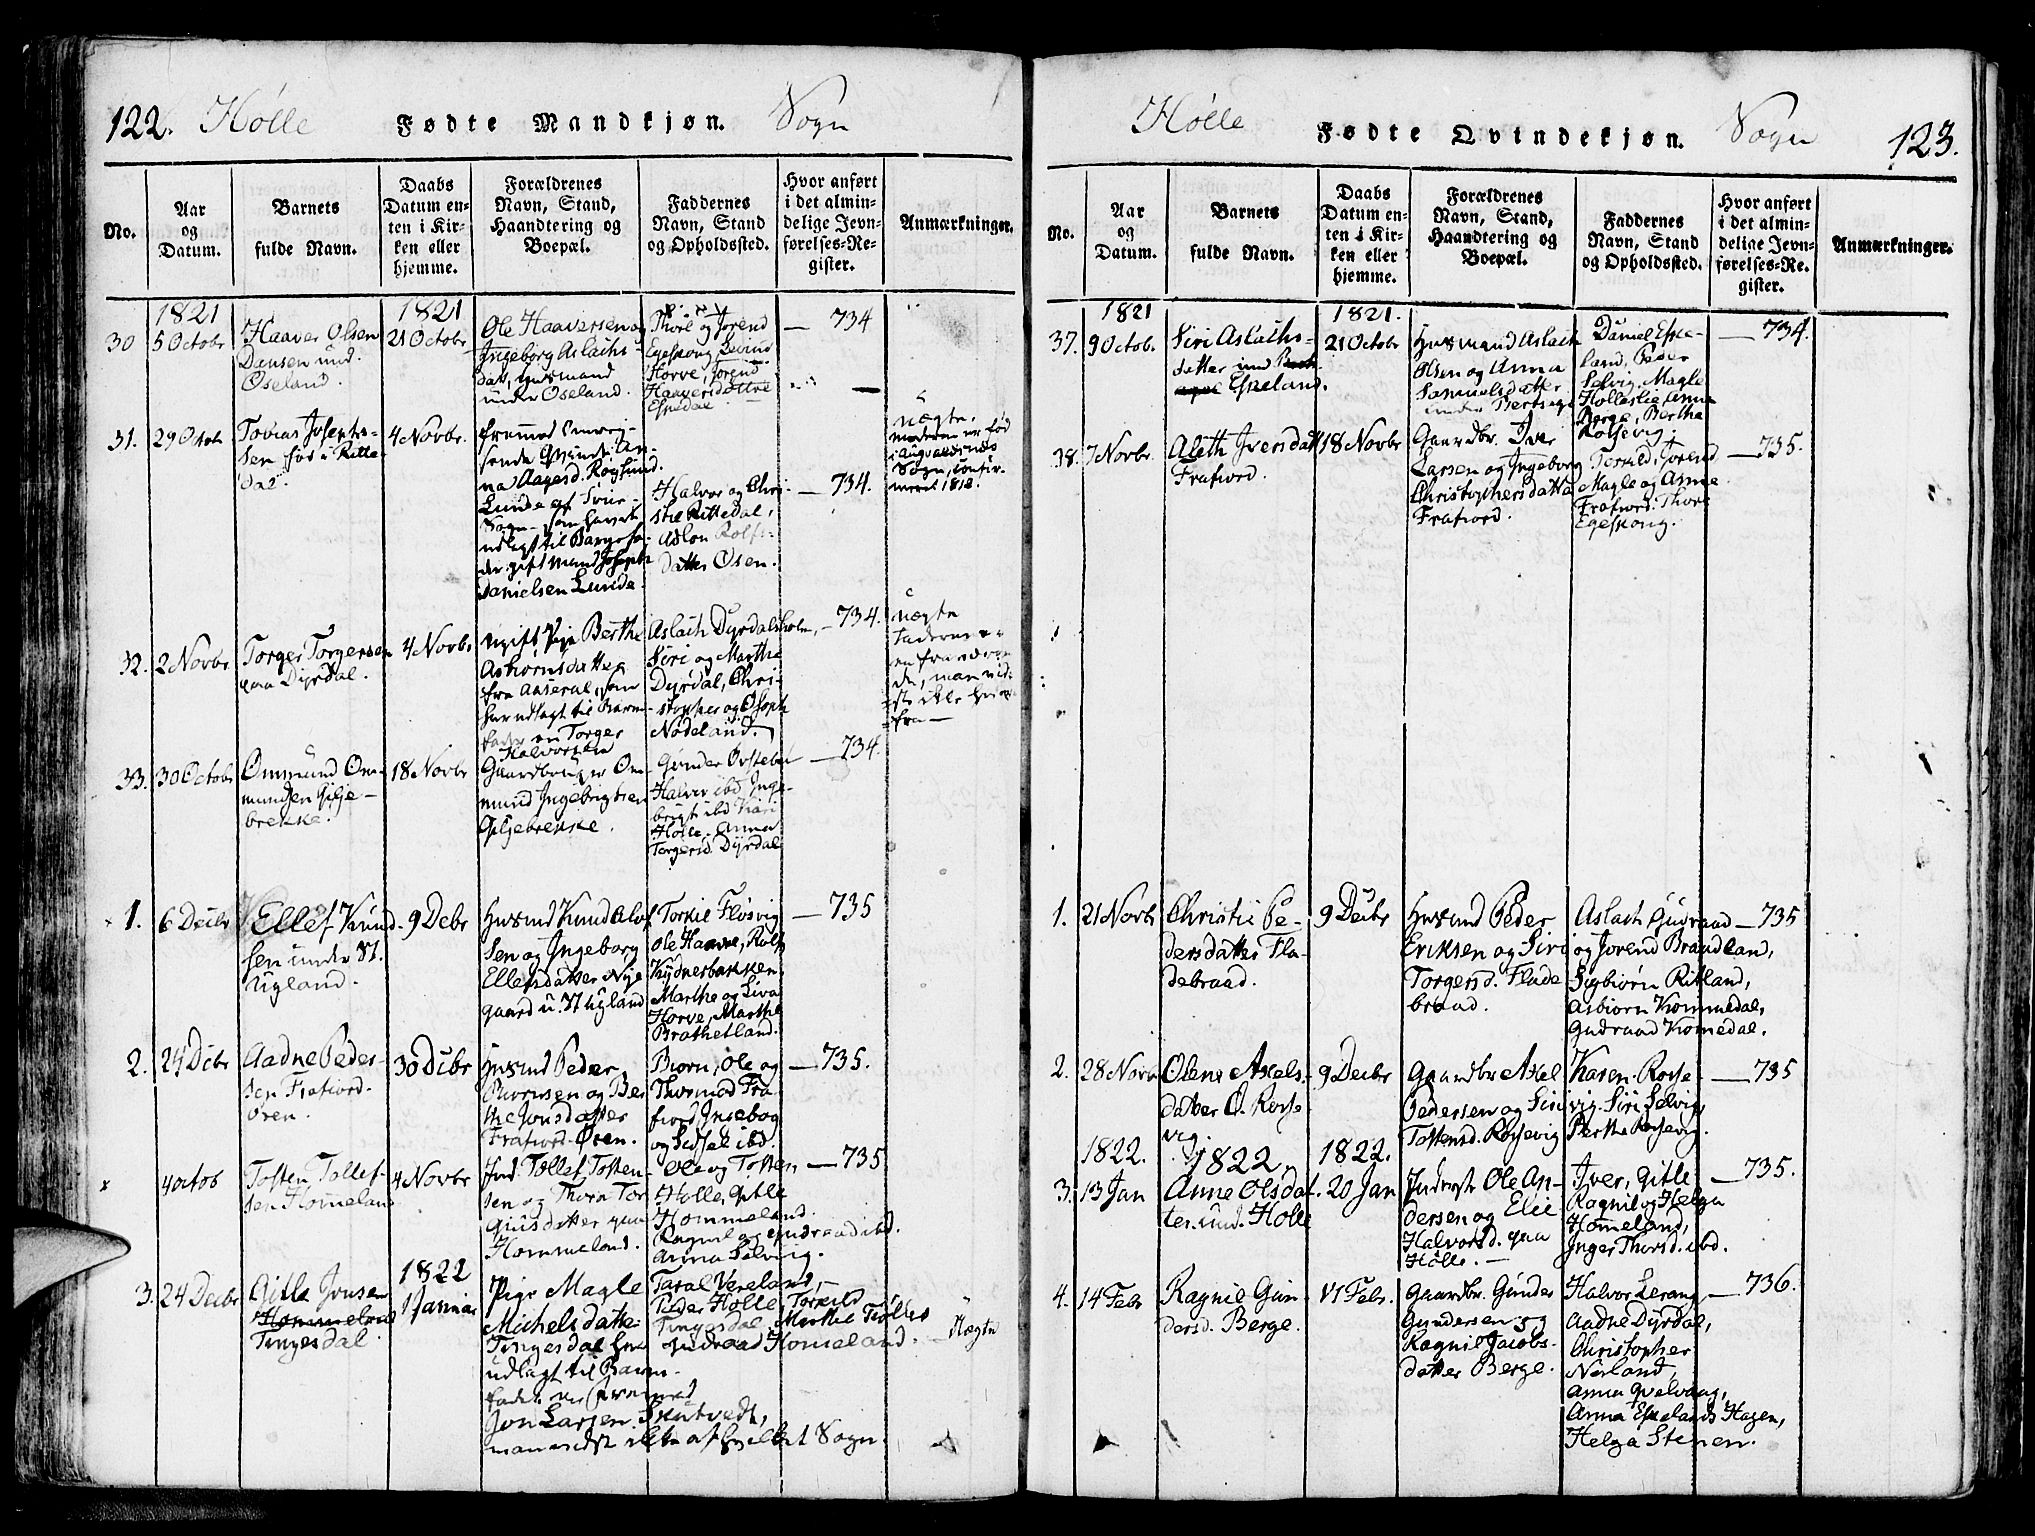 122. Hølle Fødte Mandkjøn. Sogn
No.
Aar
og
Datum.
Barnets
fulde Navn.
Daabs
Datum en-
ten i Kir-
ken eller
hjemme.
Forældrenes
Navn, Stand,
Haandtering og
Boepæl.
Faddernes
Navn, Stand
og Opholdssted.
Hvor anført
i det almin-
delige Jevn-
førelses-Re-
gister.
Anmærkninger.
1821
30
5 Octobr
Haaver Olsen
Dansen und.
Øseland.
1821
21 Octobr
Ole Haaversen og
Ingeborg Aslachs-
datt, husmand
under Øseland.
Thore og Jorend
Egeskong
Horve, Jorend
Haaversdatter
Espedal
— 734
31.
29 Octobr
Tobias Josephs-
sen fød i Ritte-
dal.
4 Novbr.
na Aagesd. Roglund.
Lunde af
Sogn - som haver
udlagt til Barnefa-
der gift Mand Joseph
Danielsen Lunde.
Halvor og Chri-
stie Rittedal,
Aslou Rolfs-
datter Øsen.
— 734.
Uægte.
Moderen er fød
i Augvaldsnæs
Sogn, confir-
meret 1818.
32.
2 Novbr.
Torger Torgersen
paa Dyrdal.
4 Novbr.
ugift Pige Berthe
Asbiørnsdatter
fra Aaseral, som
har udlagt til Barne-
fader en Torger
Halvorsen
Aslach Dyrdalsholm,
Siri og Marthe
Dyrdal, Chri-
stopher og Oseph
Nødeland.
— 734.
Uægte
33.
30 Octobr
Ommund Om-
mundsen Gilje-
brekke.
18 Novbr
Gaardbruger Om-
mund Ingebrigtsen
Giljebrekke.
Gunder Øvstebøe
Halvor ibd, Inge-
brigt ibd Kari
Hølle. Anna
Torgersd. Dyrdal
— 734.
1.
6 Decbr
Ellef Knud-
sen under St.
Ugland.
9 Debr
Husmd Knud Olof-
sen og Ingeborg
Ellefsdatter Nye-
gaard u. St Ugland
Torkil Fløsvig
Ole Haavve, Rolf
Kydnesbakken
Marthe og Siva
Horve, Marthe
Brathetland.
— 735
2.
24 Dcbr
Aadne Peder-
sen Frafiord-
øren.
30 Dcbr
Husmd Peder
Biornsen og Ber-
the Jonsdatter
Frafiord-Øren.
Biorn, Ole og
Thormod Fra-
fiord Ingebog
og Sidsel ibd.
— 735.
4 Octob
Tosten Tollef-
sen Homeland
4 Novbr
Ind. Tollef Tosten-
sen og Thora Tor-
giusdatter paa
Hommeland.
Ole og Tosten
Holle, Gitle
Hommeland.
Ragnil og Gudraad ibd.
Anna Selvig.
— 735
3.
24 Decbr
Gitle Jonsen
Hommeland
Tingesdal
1822
1 Januar
Pige Magle
Michelsdatter
Tingesdal har
udlagt til Barne-
fader en
Jon Larsen
man vidst ikke af hvilket Sogn.
Taral Veneland,
Peder Holle, Torkild
Tingesdal, Marthe Tiøllis
Gudraad Homeland.
— Uægte
Hølle Fødte Qvindekjøn. Sogn 123.
No.
Aar
og
Datum.
Barnets
fulde Navn.
Daabs
Datum en-
ten i Kir-
ken eller
hjemme.
Forældrenes
Navn, Stand,
Haandtering og
Boepæl.
Faddernes
Navn, Stand
og Opholdssted.
Hvor anført
i det almin-
delige Jevn-
førelses-Re-
gister.
Anmærkninger.
1821
37.
9 Octob.
Siri Aslachs-
datter und
Espeland.
1821.
21 Octobr
Husmand Aslach
Olsen og Anna
Samuelsdatter
Daniel Espe-
land, Peder
Selvig, Magle
Holleslie Anna
Berge, Berthe
Rossevig.
— 734.
38.
7 Novbr.
Aleth Iversdatt
Frafiord.
18 Novbr
Gaardbr. Iver
Larsen og Ingeborg
Christophersdatter
Frafiord.
Torkild, Jorend
Magle og Anne
Frafiord. Thore
Egeskong.
— 735.
1.
21 Novbr
Christi Pe-
dersdatter Fla-
debraad.
9 Decbr
Husmd Peder
Eriksen og Siri
Torgersd. Flade
braad.
Aslach Gudraad
og Jorend Brandland,
Sigbiørn Ritland,
Asbiørn Kommedal,
Gudraad Komedal.
— 735
2.
28 Novbr
Olena Axels-
datter O. Rosse-
vig.
9 Decbr
Gaardbr Axel
Pedersen og Siri
Tostensd. Rossevig
Karen Rosse-
vig. Siri Selvig,
Berthe Rossevig.
— 735
1822. 1822. 1822.
3.
13 Jan
Anne Olsdat-
ter und. Holle
20 Jan
Inderste Ole An-
dersen og Elie
Halvorsd. paa
Hölle. —
Iver, Gitle
Ragnil og Helga
Homeland,
Inger Thorsd. ibd.
— 735.
4.
14 Febr
Ragnil Gun-
dersd. Berge.
17 Febr.
Gaardbr. Gunder
Gundersen og
Ragnil Jacobs-
datter Berge.
Halvor Lerang,
Aadne Dyrdal,
Christopher
Neland,
Anna Qvelvaag,
Anna Espelands Hagen,
Helga Stenen.
— 736.